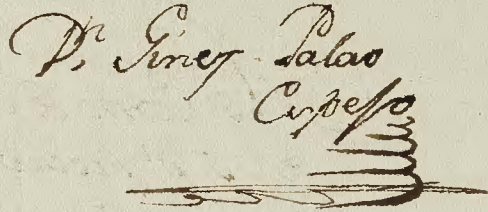 Dn. Gines Palao
Cespesso